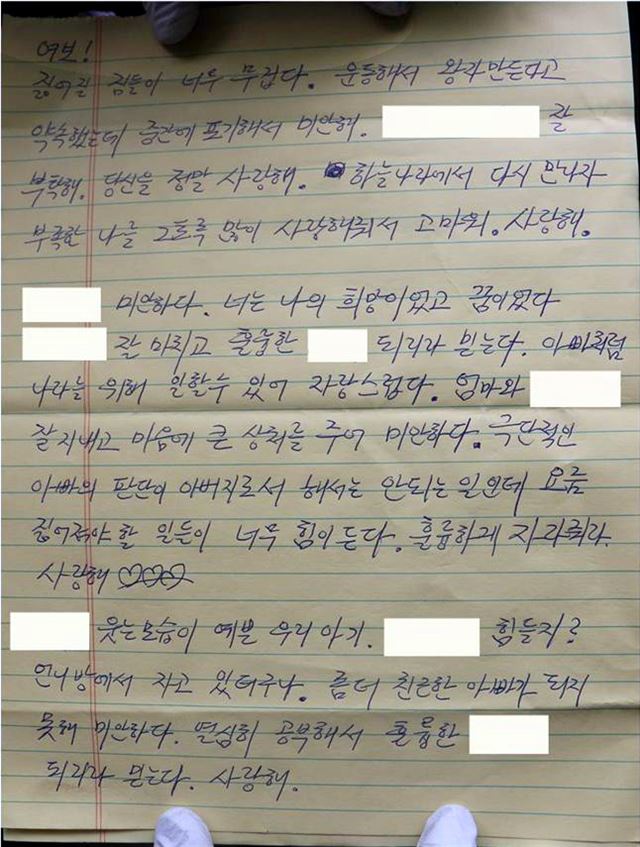 여보!
짊어질 짐들이 너무 무겁다. 운동해서 왕자만든다고
약속했는데 중간에 포기해서 미안해. 잘
부탁해. 당신을 정말 사랑해. 하늘나라에서 다시 만나자
부족한 나를 그토록 많이 사랑해줘서 고마워. 사랑해.
미안하다. 너는 나의 희망이었고 꿈이었다
잘 마치고 훌륭한 되리라 믿는다. 아빠처럼
나라를 위해 일할수 있어 자랑스럽다. 엄마와
잘지내고 마음에 큰 상처를 주어 미안하다. 극단적인
아빠의 판단이 아버지로서 해서는 안되는 일인데 요즘
짊어져야 할 일들이 너무 힘이 든다. 훌륭하게 자라줘라.
사랑해 ♡♡♡
웃는모습이 예쁜 우리아기. 힘들지?
언니방에서 자고 있더구나. 좀더 친근한 아빠가 되지
못해 미안하다. 열심히 공부해서 훌륭한
되리라 믿는다. 사랑해.